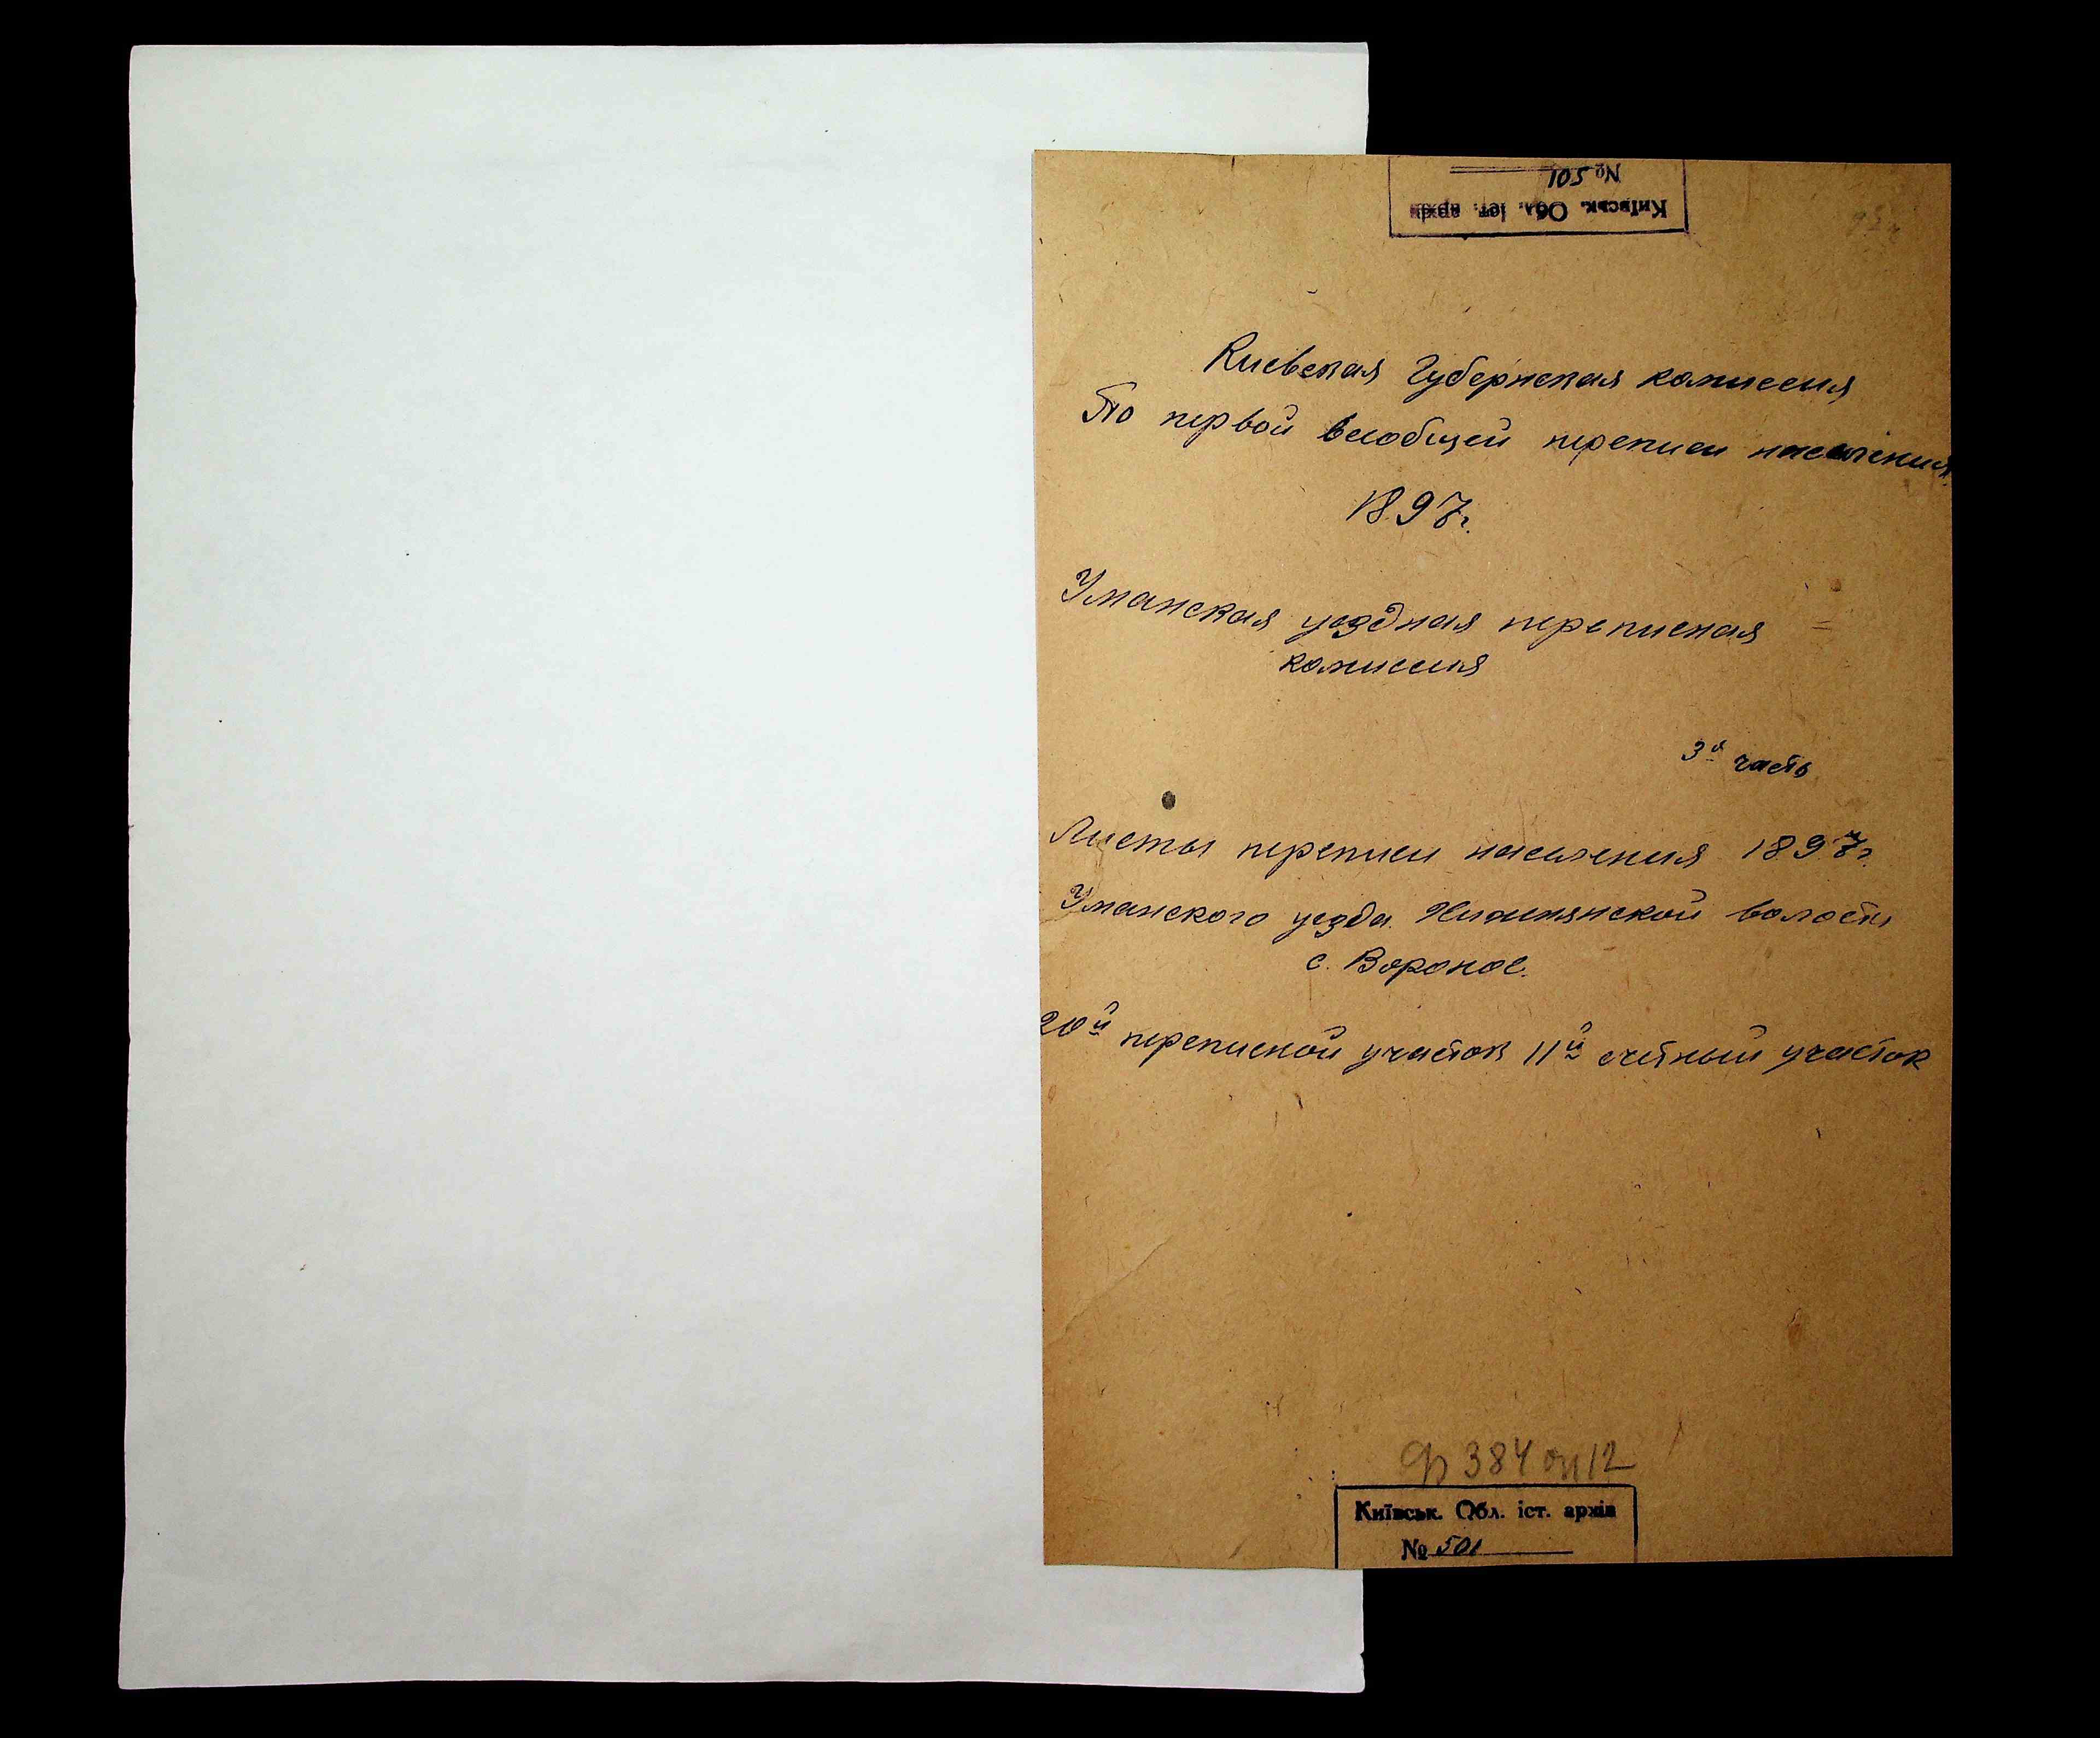 № 501
Київськ. Обл. іст. архів
Киевская Губернская комиссия
По первой всеобщей переписи населения
1897г.
Уманская уездная переписная
комиссия
3я часть
Листы переписи населения 1897г.
Уманского уезда волости
с. Вороное.
20й переписной участок 11й счетный участок
ф 384 оп 12
Київськ. Обл. іст. архів
№ 501